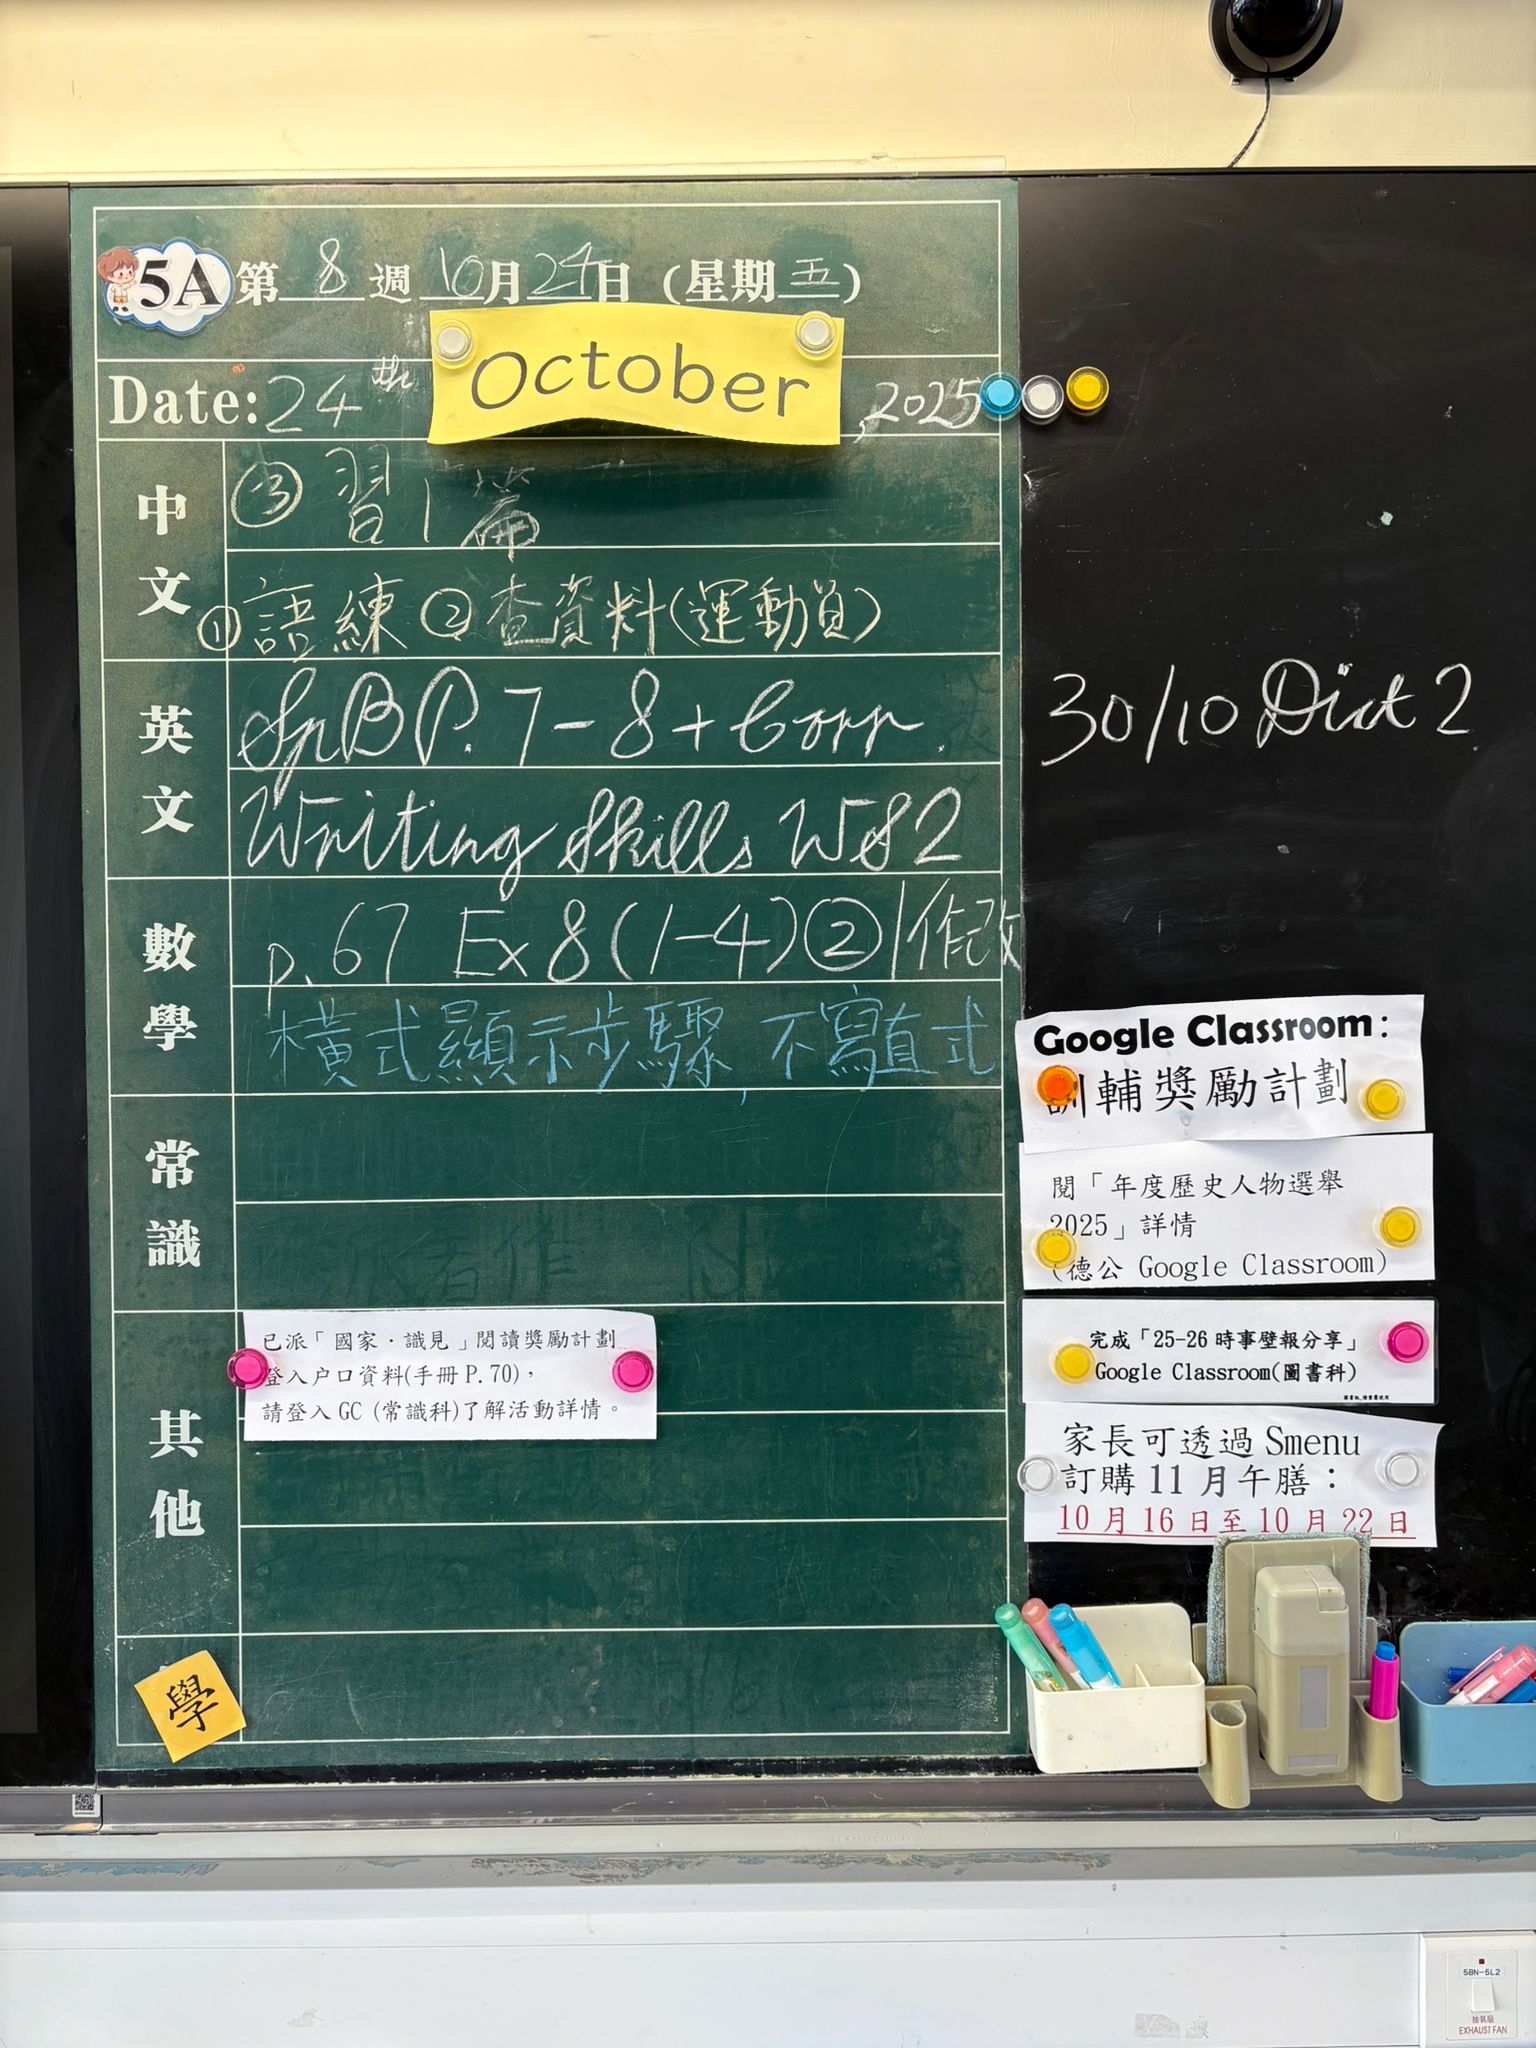 5A 第 8 週 10 月 24 日 (星期 五)
Date: 24th October, 2025
中文
③ 習1篇
① 語練 ② 查資料(運動員)
英文
SpB P.7-8 + Corr.
Writing Skills WS2
數學
p.67 Ex 8 (1-4) ② | 作改
橫式顯示步驟, 不寫直式
常識
其他
已派「國家·識見」閱讀獎勵計劃
登入户口資料(手冊 P.70),
請登入 GC (常識科)了解活動詳情。
學
30/10 Dict 2
Google Classroom:
訓輔獎勵計劃
閱「年度歷史人物選舉
2025」詳情
(德公 Google Classroom)
完成「25-26 時事壁報分享」
Google Classroom(圖書科)
家長可透過 Smenu
訂購 11 月午膳:
10 月 16 日至 10 月 22 日
5BN-5L2
抽氣扇
EXHAUST FAN